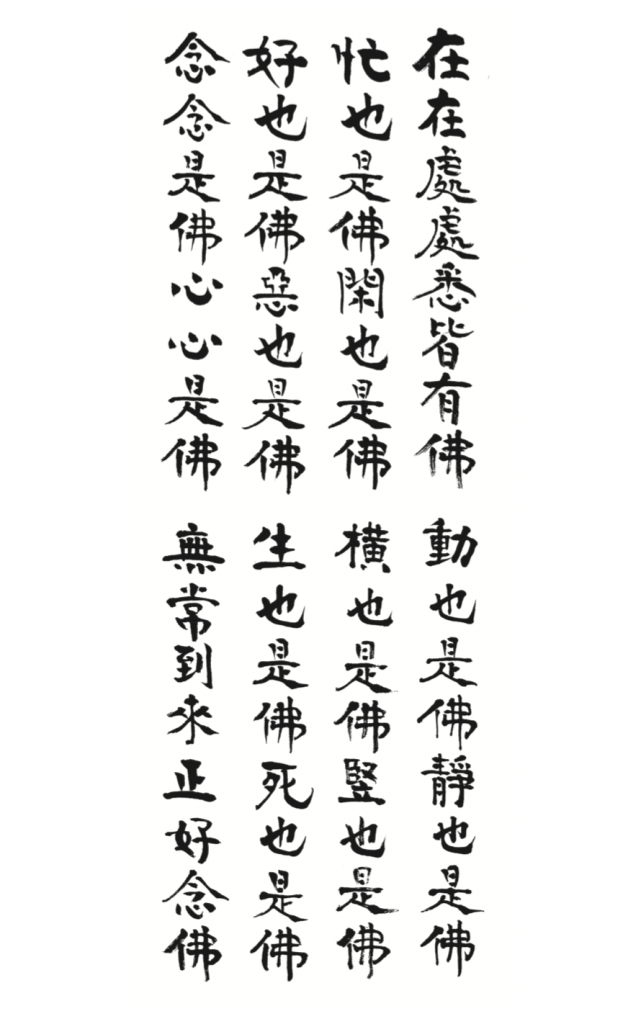 在在處處悉皆有佛
動也是佛靜也是佛
忙也是佛閑也是佛
橫也是佛竪也是佛
好也是佛惡也是佛
生也是佛死也是佛
念念是佛心心是佛
無常到來正好念佛